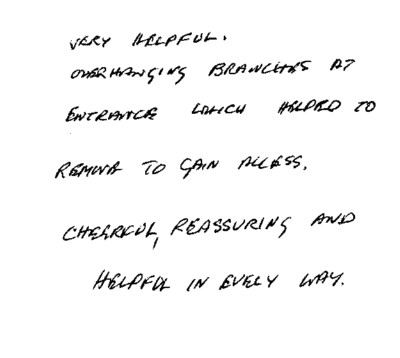 VERY HELPFUL.
OVERHANGING BRANCHES AT
ENTRANCE WHICH HELPED TO
REMOVE TO GAIN ACCESS.
CHEERFUL, REASSURING AND
HELPFUL IN EVERY WAY.